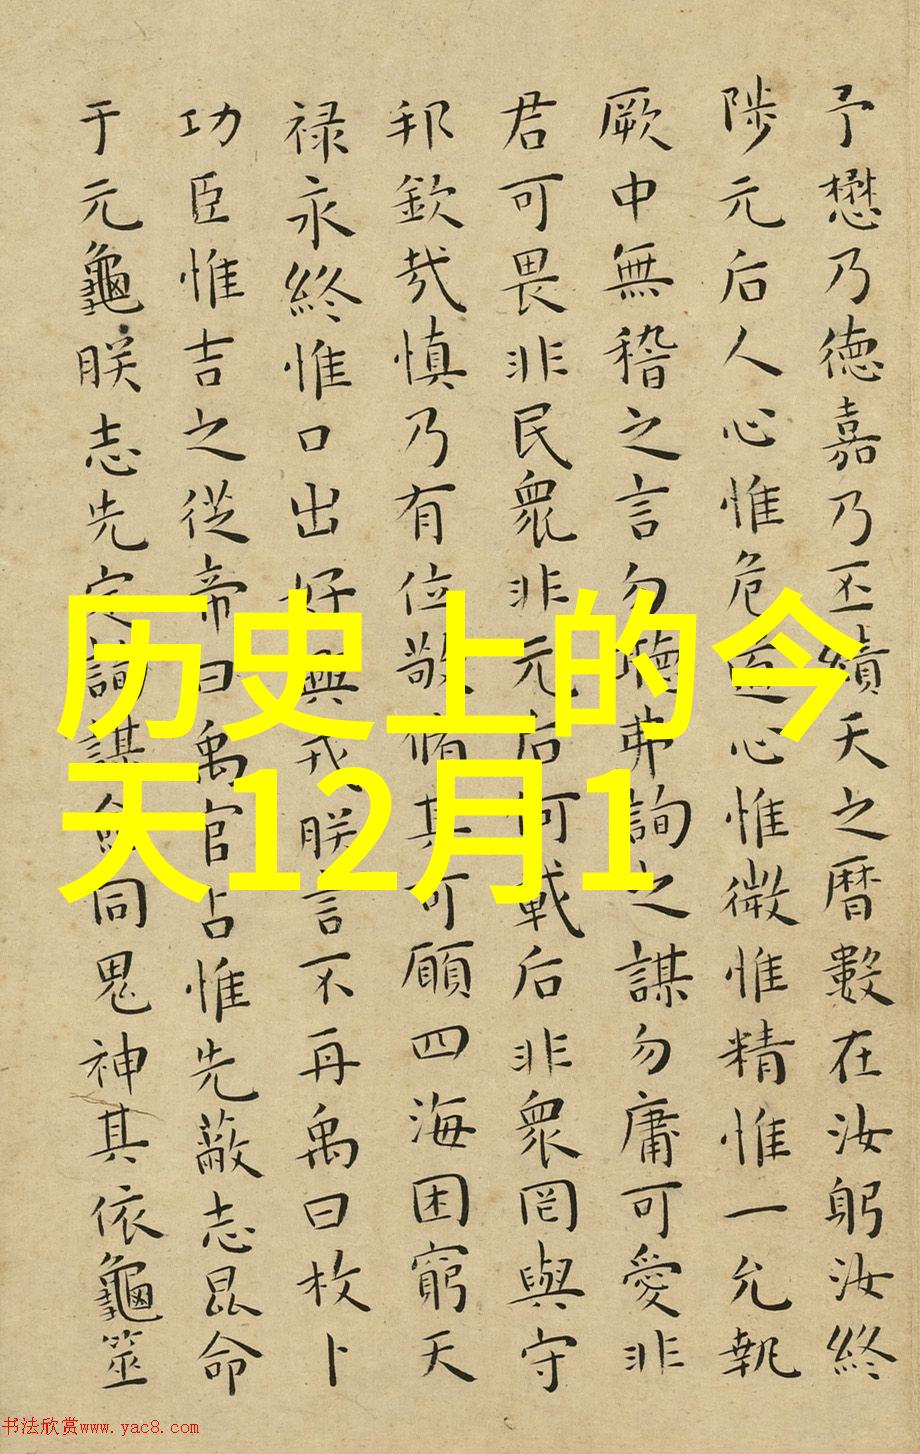 予懋乃德嘉乃丕績天之曆數在汝躬汝終
陟元后人心惟危道心惟微惟精惟一允執
厥中無稽之言勿聽弗詢之謀勿庸可愛非
君可畏非民衆非元后何戴后非衆罔與守
邦欽哉慎乃有位敬脩其可願四海困窮天
禄永終惟口出好興戎朕言不再禹曰枚卜
功臣惟吉之從帝曰禹官占惟先蔽志昆命
于元龜朕志先定詢謀僉同鬼神其依龜筮
历史上的今
天12月1
书法欣赏www.yac8.com